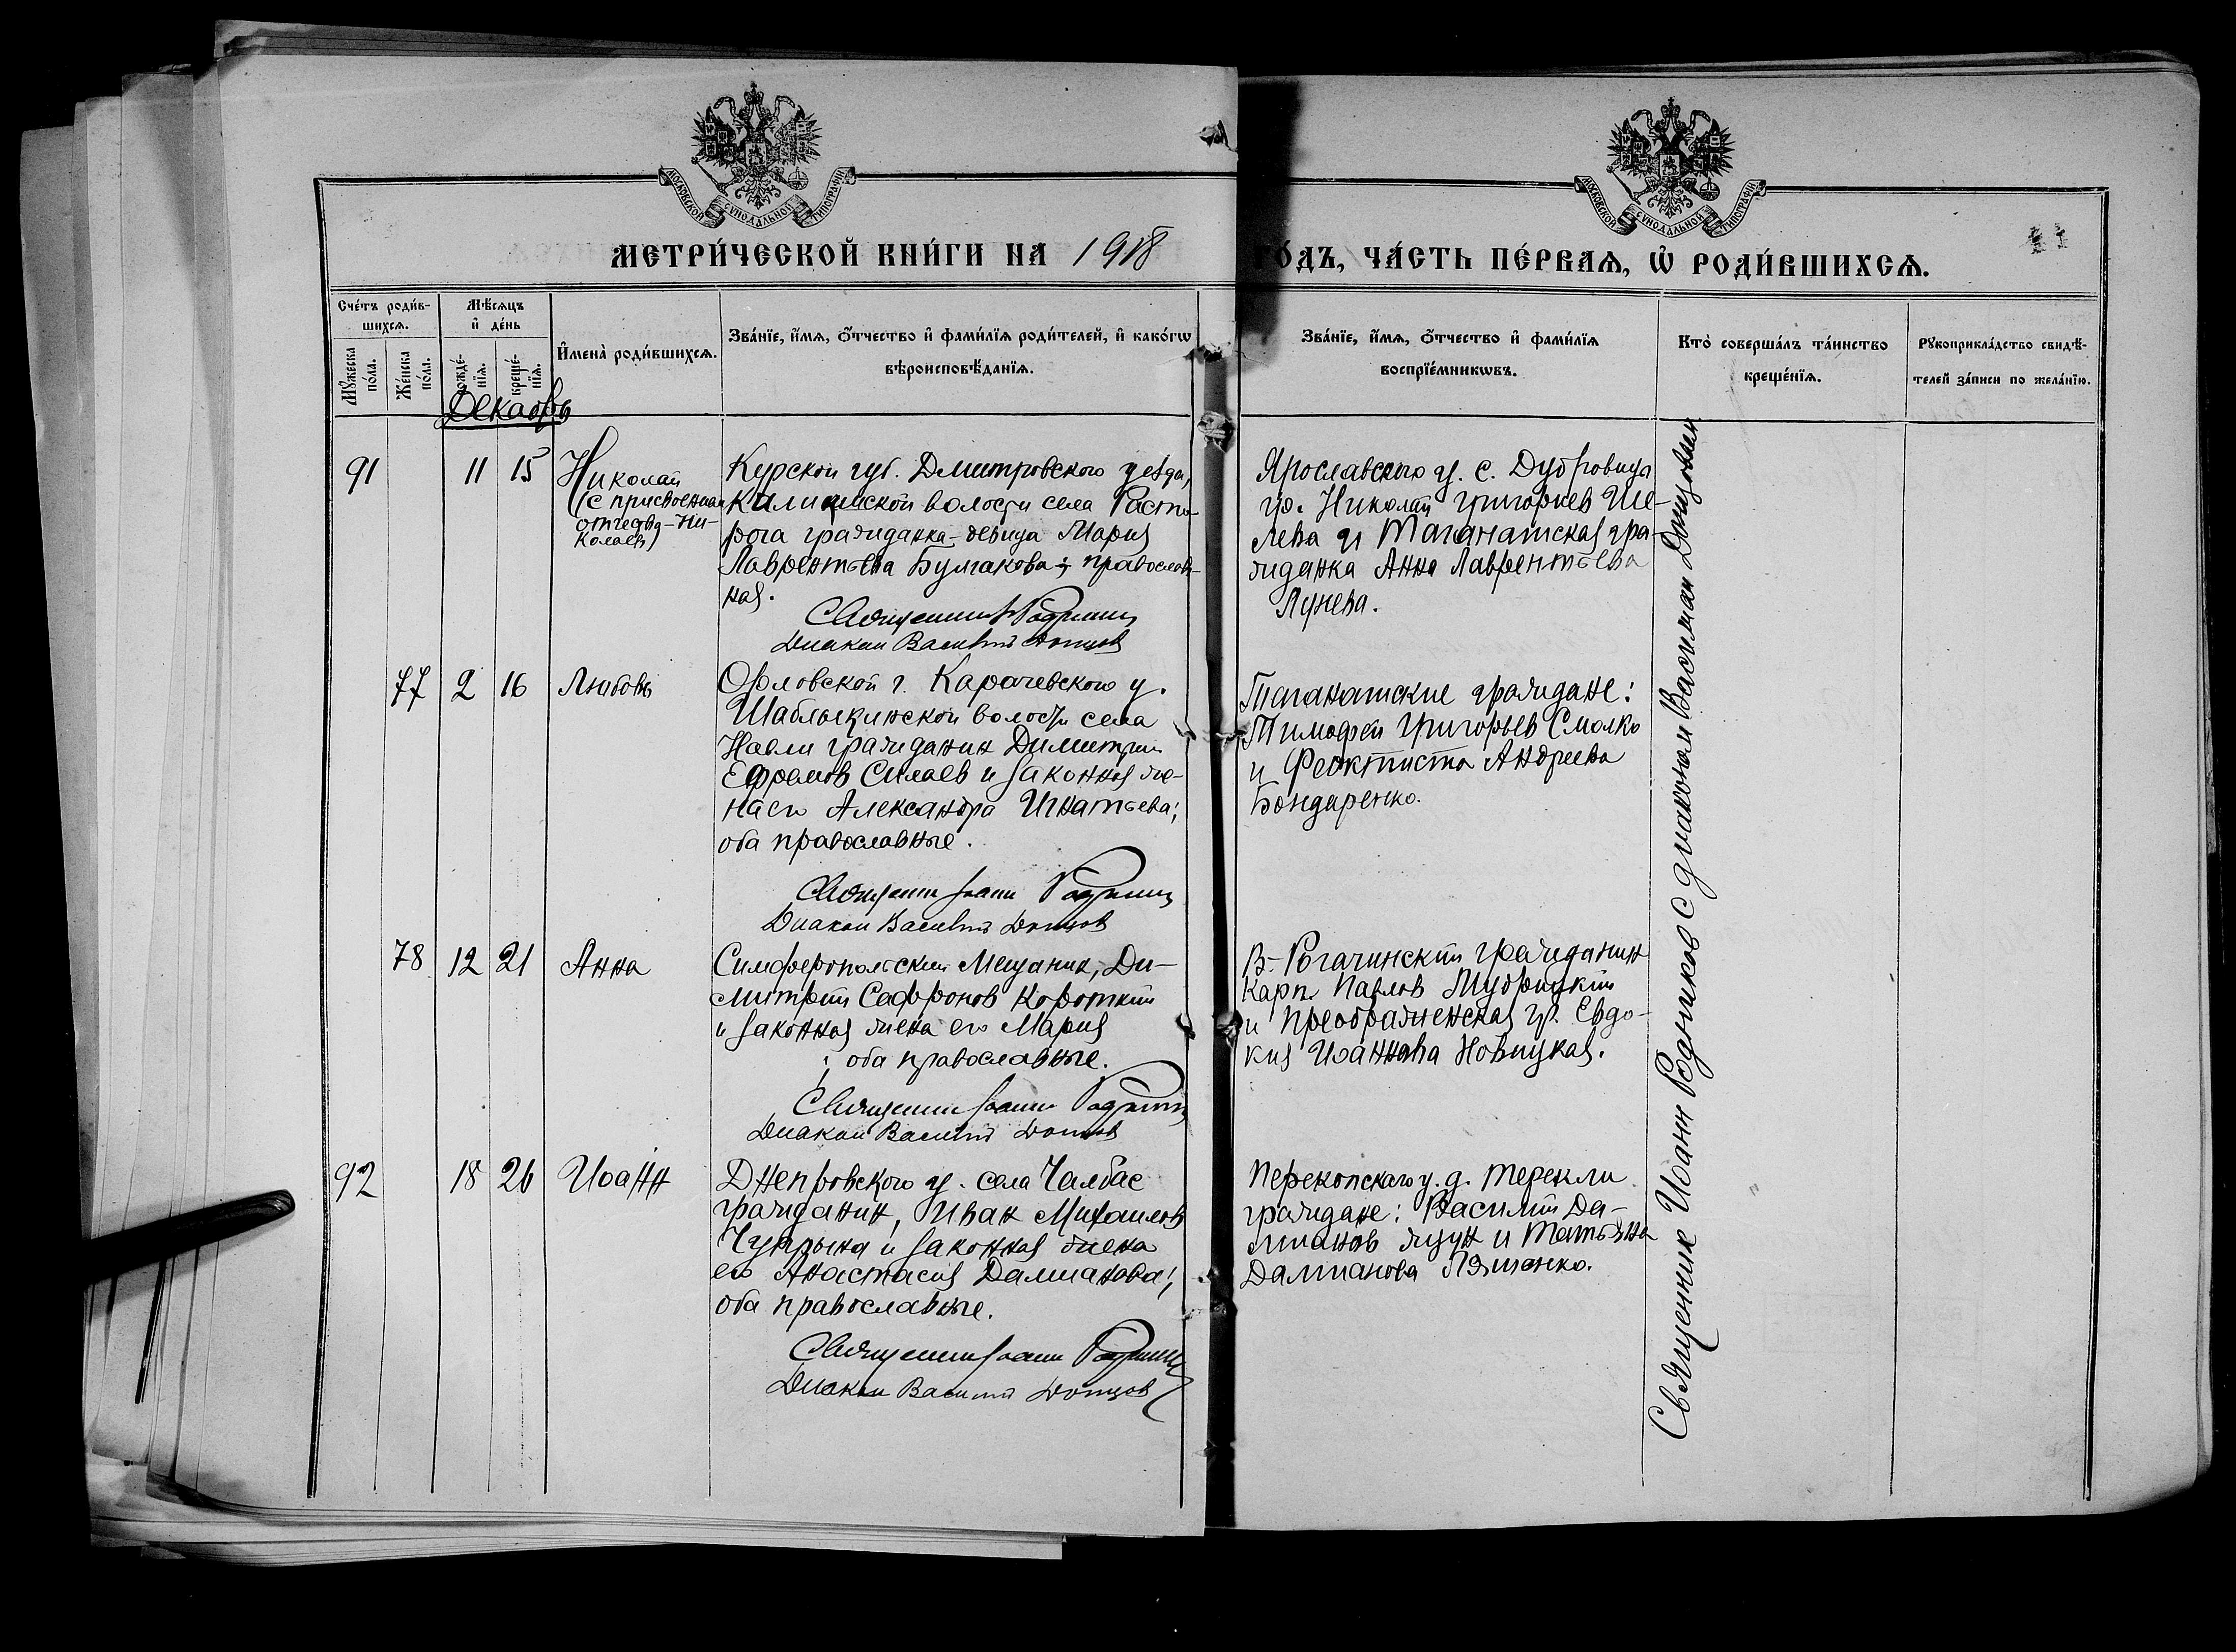 МОСКОВСКОЙ СѴНОДАЛЬНОЙ ТИПОГРАФІИ
МОСКОВСКОЙ СѴНОДАЛЬНОЙ ТИПОГРАФІИ
МЕТРИ́ЧЕСКОЙ КНИ́ГИ НА 1918
ГО́ДЪ, ЧА́СТЬ ПЕ́РВАѦ, Ѿ РОДИ́ВШИХСѦ.
Сче́тъ роди́в-
шихсѧ.
Мѣ́сѧцъ
и҆ де́нь
Мꙋ́жеска
по́ла.
Же́нска
по́ла.
рожде́-
нїѧ.
креще́-
нїѧ.
И҆мена̀ роди́вшихсѧ.
Зва́нїе, и҆́мѧ, ѻ҆́тчество и҆ фами́лїѧ роди́телей, и҆ како́гѡ
вѣроисповѣ́данїѧ.
Зва́нїе, и҆́мѧ, ѻ҆́тчество и҆ фами́лїѧ
воспрїе́мникѡвъ.
Кто̀ соверша́лъ та́инство
креще́нїѧ.
Рꙋкоприкла́дство свидѣ́-
телей за́писи по жела́нїю.
Декабрь
91 11 15 Николай
(с присвоением
отчества-Ни-
колаев)
Курской губ. Дмитровского уезда,
волости села Расто-
рога гражданка-девица Мария
Лаврентьева Булгакова; православ-
ная.
Священник Родников
Диакон Василий Донцов
Ярославского у. с. Дубровица
гр. Николай Григорьев Ше-
лева и Таганашская гра-
жданка Анна Лаврентьева
Лунева.
77 2 16 Любовь
Орловской г. Карачевского у.
Шаблыкинской волости села
Навли гражданин Димитрий
Ефремов Силаев и законная же-
на его Александра Игнатьева;
оба православные.
Священник Иоанн Родников
Диакон Василий Донцов
Таганашские граждане:
Тимофей Григорьев Смолко
и Феоктиста Андреева
Бондаренко.
78 12 21 Анна
Симферопольский мещанин, Ди-
митрий Сафронов Короткий
и законная жена его Мария
; оба православные.
Священник Иоанн Родников
Диакон Василий Донцов
В-Рогачинский гражданин
Карп Павлов Мудрицкий
и Преображенская гр. Евдо-
кия Иоаннова Новицкая.
92 18 26 Иоанн
Днепровского у. села Чалбас
гражданин, Иван Михаилов
Чупрына и законная жена
его Анастасия Дамианова;
оба православные.
Священник Иоанн Родников
Диакон Василий Донцов
Перекопского у. д. Терекли
граждане: Василий Да-
мианов Яцун и Татьяна
Дамианова Ляшенко.
Священник Иоанн Родников с диаконом Василием Донцовым